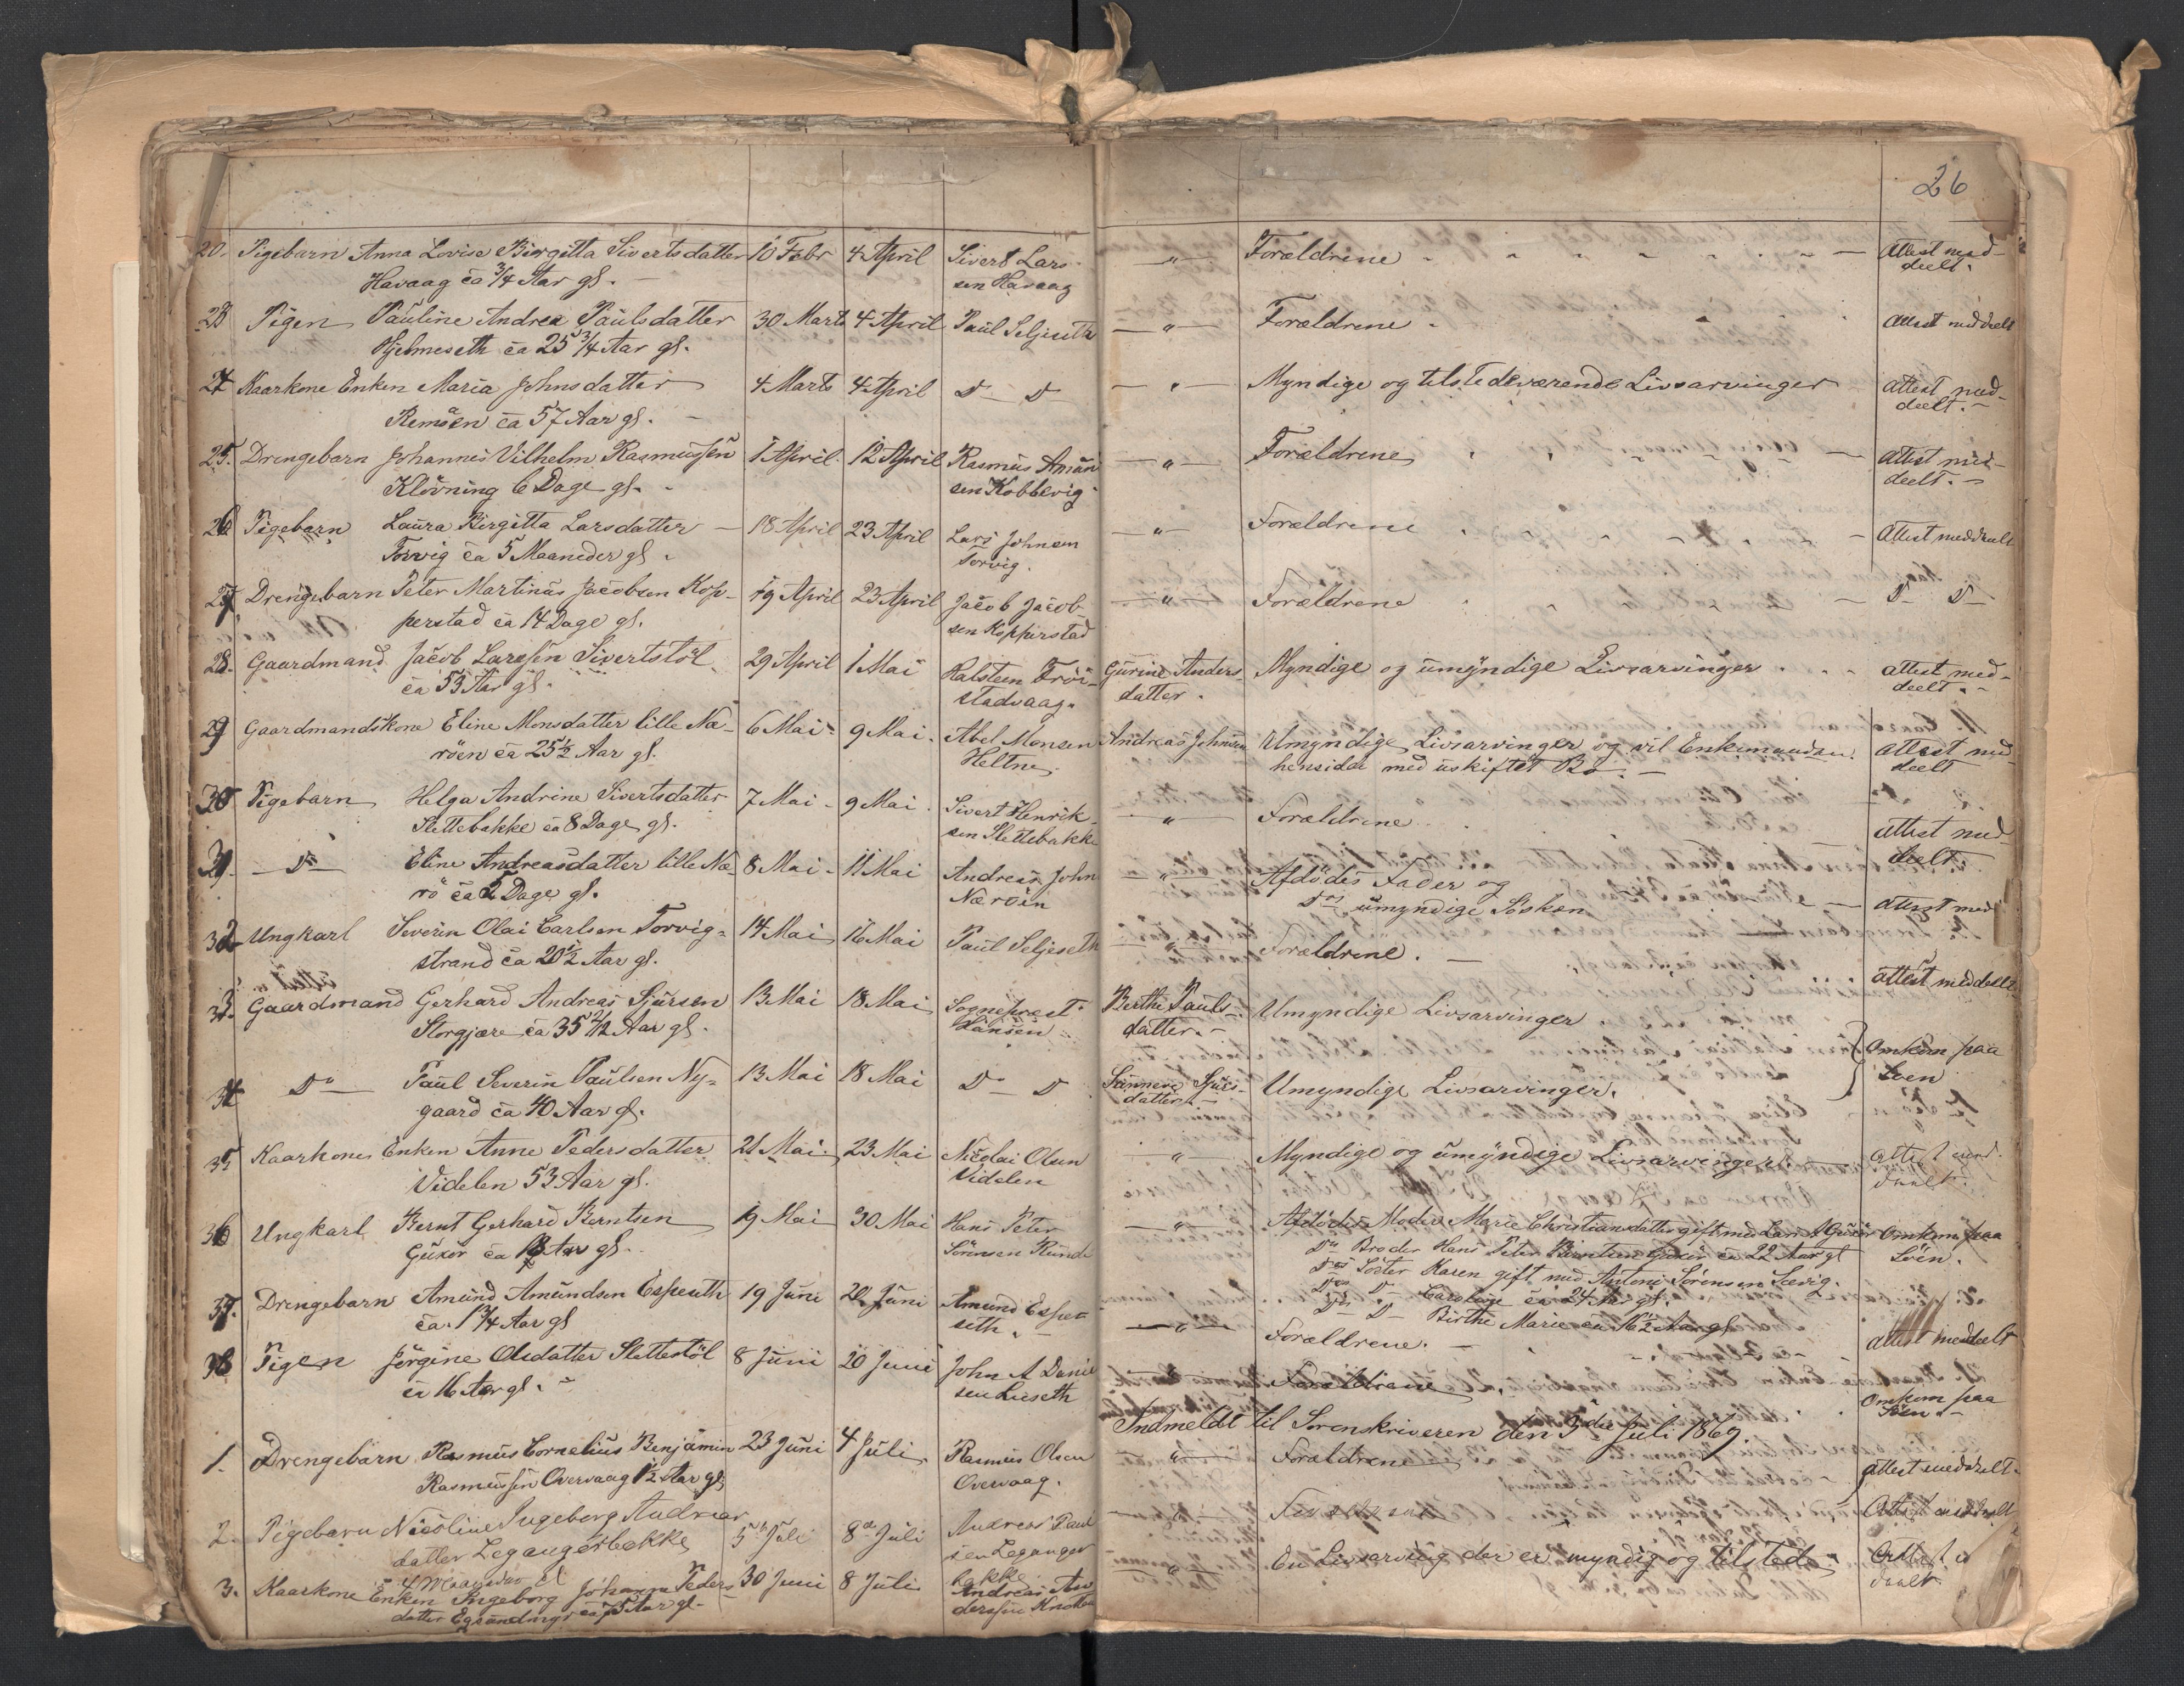 26
20. Pigebarn Anna Lovise Birgitta Sivertsdatter 10 Febr 4 April Sivert Lars- —"— Forældrene Attest med-
Havaag ca 3/4 Aar gl. sen Havaag deelt.
23 Pigen Pauline Andrea Paulsdatter 30 Marts 4 April Paul Seljeseth —"— Forældrene Attest meddeelt
Hjelmeseth ca 25 3/4 Aar gl.
24 Kaarkone Enken Maria Johnsdatter 4 Marts 4 April D— D— —"— Myndige og tilstedeværende Livsarvinger Attest med-
Remöen ca 57 Aar gl. deelt.
25. Drengebarn Johannes Vilhelm Rasmussen 1 April 12 April Rasmus Amun —"— Forældrene Attest med-
Klövning 6 Dage gl. sen Kobbevig deelt.
26 Pigebarn Laura Birgitta Larsdatter 18 April 23 April Lars Johnsen —"— Forældrene Attest meddeelt
Torvig ca 5 Maaneder gl. Torvig.
27 Drengebarn Peter Martinus Jacobsen Kop- 19 April 23 April Jacob Jacob- —"— Forældrene D— D—
perstad ca 14 Dage gl. sen Kopperstad
28. Gaardmand Jacob Larssen Sivertstöl 29 April 1 Mai Halsteen Fröi- Gurine Anders- Myndige og umyndige Livsarvinger Attest med-
ca 53 Aar gl. stadvaag. datter. deelt.
29 Gaardmandskone Eline Monsdatter lille Næ- 6 Mai 9 Mai. Abel Monsen Andreas Johnsen Umyndige Livsarvinger og vil Enkemanden Attest med-
röen ca 25 1/2 Aar gl. Heltne hensidde med uskiftet Bo. deelt
30 Pigebarn Helga Andrine Sivertsdatter 7 Mai 9 Mai. Sivert Henrik- —"— Forældrene Attest med-
Slettebakke ca 8 Dage gl. sen Slettebakke deelt.
31. —Do— Eline Andreasdatter lille Næ- 8 Mai 11 Mai Andreas John —"— Afdödes Fader og
rö ca Dage gl. Næröen Dos umyndige Sösken Attest med
32 Ungkarl Severin Olai Carlsen Torvig- 14 Mai 16 Mai Paul Seljeseth —"— Forældrene. Attest meddeelt
strand ca 20 1/2 Aar gl.
33. Gaardmand Gerhard Andreas Sjursen 13 Mai 18 Mai Sogneprest Berthe Pauls- Umyndige Livsarvinger
Storgjære ca 35 2/12 Aar gl. Hansen datter. Omkom paa
34 Do— Paul Severin Paulsen Ny- 13 Mai 18 Mai Do— D Sünneve Sjurs- Umyndige Livsarvinger. Söen
gaard ca 40 Aar gl. datter
35 Kaarkone Enken Anne Pedersdatter 21 Mai. 23 Mai Nicolai Olsen —"— Myndige og umyndige Livsarvinger. Attest med-
Videlen 53 Aar gl. Videlen deelt.
36 Ungkarl Bernt Gerhard Berntsen 19 Mai 30 Mai Hans Peter —"— Afdödes Moder Marie Christiansdatter gift med Lars Gusör Omkom paa
Gusör ca 18 Aar gl. Sörensen Runde Ds Broder Hans Peter Berntsen Gusör ca 22 Aar gl Söen.
Dos Söster Karen gift med Antoni Sörensen Sævig.
Dos D— Caroline ca 24 Aar gl.
Dos D— Birthe Marie ca 16 1/2 Aar gl
37. Drengebarn Amund Amundsen Espeseth 19 Juni 20 Juni Amund Espe- —"— Forældrene. Attest meddeelt
ca. 1 3/4 Aar gl seth.
38 Pigen Jörgine Olsdatter Slettestöl 8 Juni 20 Juni John A Daniel Forældrene Omkom paa
ca 16 Aar gl. sen Liseth Söen
Indmeldt til Sorenskriveren den 5te Juli 1869.
1. Drengebarn Rasmus Cornelius Benjamin 23 Juni 4 Juli. Rasmus Olsen —"— Forældrene Attest meddeelt.
Rasmussen Overvaag 1 1/2 Aar gl. Overvaag.
2. Pigebarn Nicoline Ingeborg Andreas- 5te Juli 8de Juli Andreas Paul —"— Forældrene Attest meddeelt
datter Legangerbakke sen Leganger
4 Maaneder gl bakke
3. Kaarkone Enken Ingeborg Johanna Peders- 30 Juni 8 Juli Andreas An —"— En Livsarving der er myndig og tilstede Attest
datter Egsundnes ca 75 Aar gl. derssen Knotten deelt.